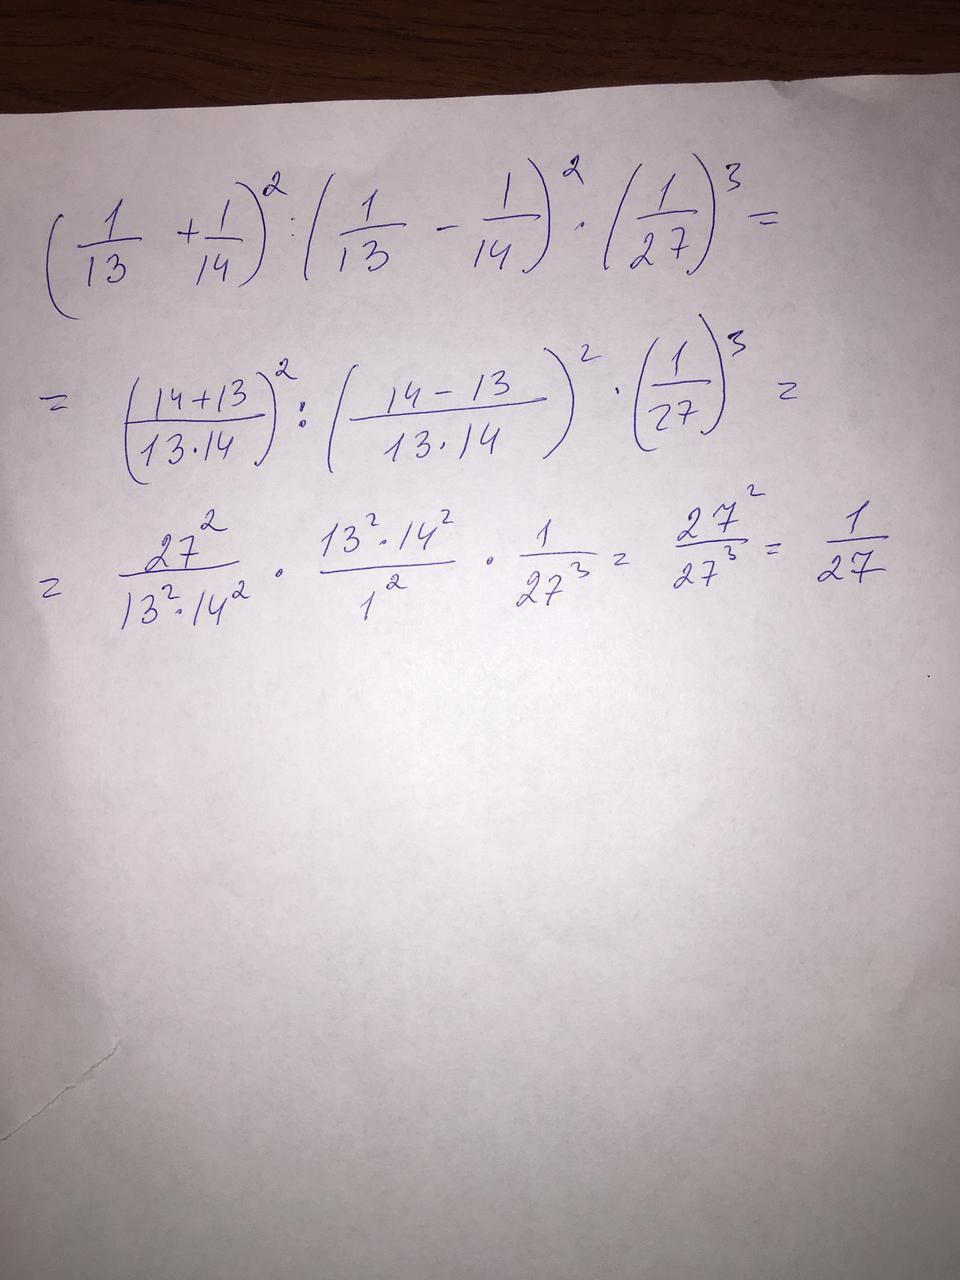 (1/13 + 1/14)² : (1/13 - 1/14)² · (1/27)³ =
= ((14+13)/(13·14))² : ((14-13)/(13·14))² · (1/27)³ =
= 27²/(13²·14²) · (13²·14²)/1² · 1/27³ = 27²/27³ = 1/27